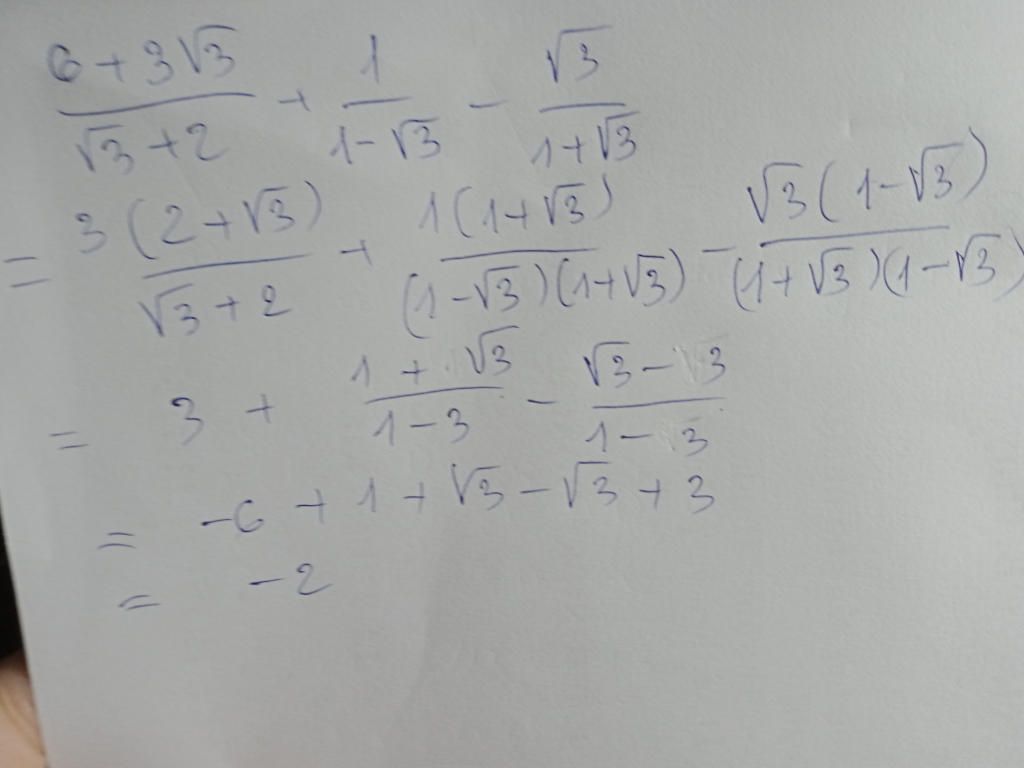 (6+3√3)/(√3+2) + 1/(1-√3) - √3/(1+√3)
= 3(2+√3)/(√3+2) + 1(1+√3)/((1-√3)(1+√3)) - √3(1-√3)/((1+√3)(1-√3))
= 3 + (1+√3)/(1-3) - (√3-3)/(1-3)
= -6+1+√3-√3+3
= -2